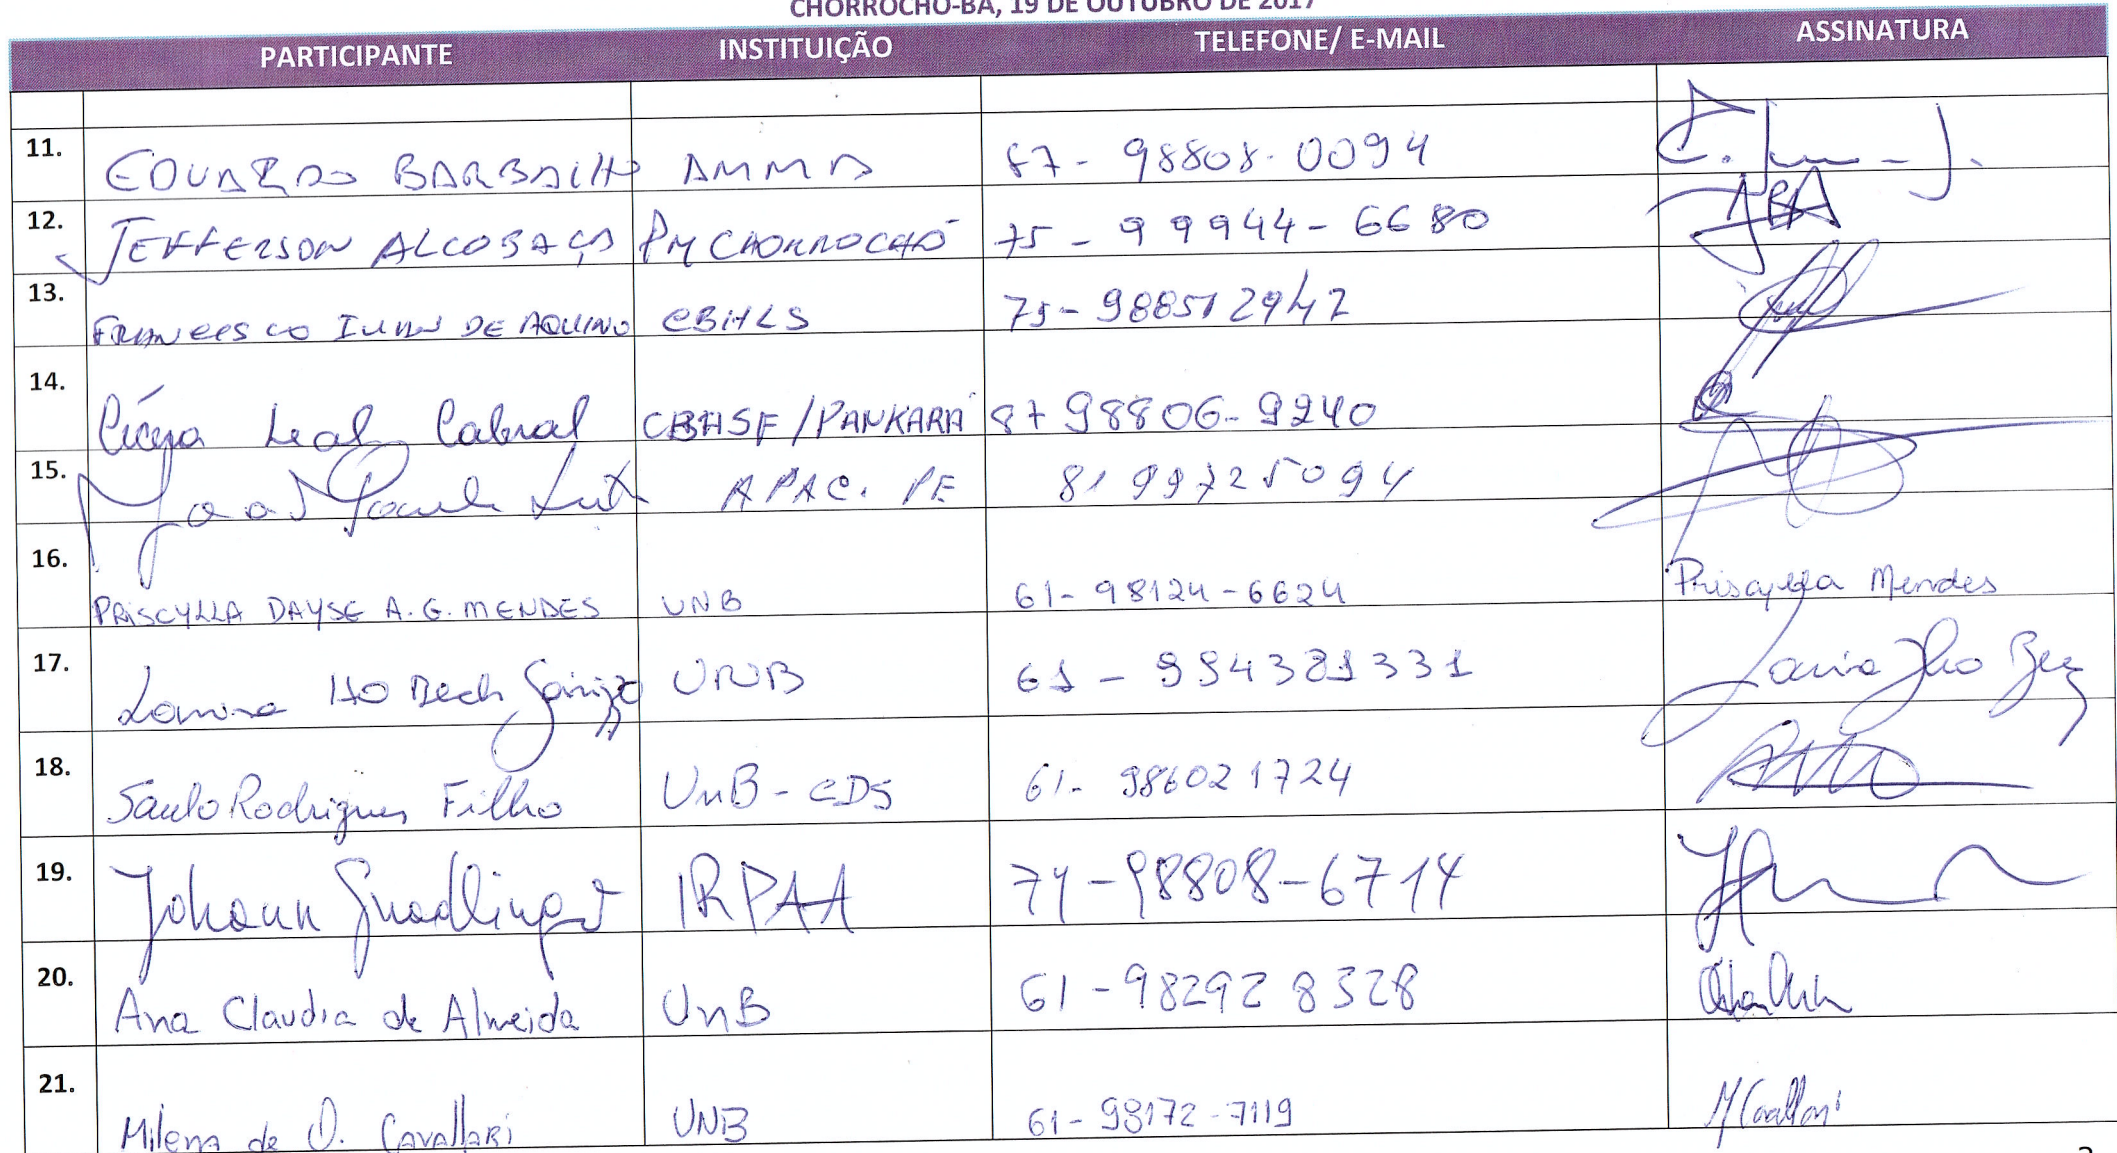 CHORROCHÓ-BA, 19 DE OUTUBRO DE 2017
PARTICIPANTE INSTITUIÇÃO TELEFONE/ E-MAIL ASSINATURA
11. EDUARDO BARBALHO AMMA 87- 98808-0094
12. JEFFERSON ALCOBAÇA PM CHORROCHÓ 75-99944-6680 JBA
13. FRANCISCO IVAN DE AQUINO CBHLS 75-988512942
14. Cícera Leal Cabral CBHSF/PANKARÁ 87 98806-9240
15. Joao Paulo APAC. PE 81 99725094
16. PRISCYLLA DAYSE A. G. MENDES UNB 61-98124-6624 Priscylla Mendes
17. Ito Bech UNB 61-994381331
18. Saulo Rodrigues Filho UnB-CDS 61-986021724
19. Johann Gnadlinger IRPAA 74-98808-6714
20. Ana Claudia de Almeida UnB 61-982928328
21. Milena de O. Cavallari UNB 61-98172-7119 MCavallari